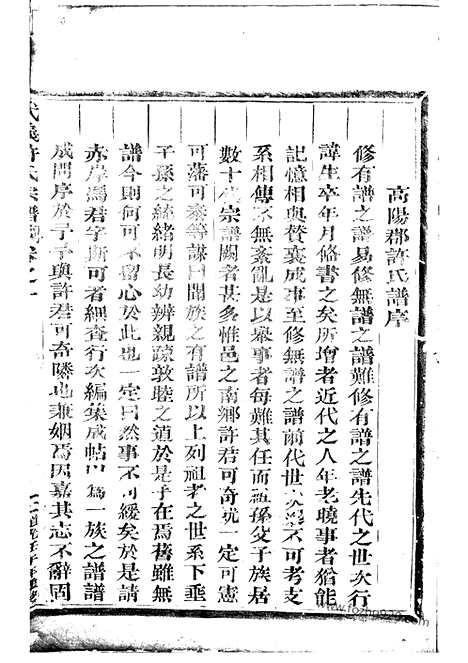 高陽郡許氏譜序
修有譜之譜易修無譜之譜難修有譜之譜先代之世次行
諱生卒年月俻書之矣所增者近代之人年老曉事者猶能
記憶相與贊襄成事至修無譜之譜前代世次不可考支
系相傳不無紊亂是以舉事者每難其任而祖孫父子族居
數十宗譜闕者甚多惟邑之南鄉許君可奇一定可憲
可藩可泰等謀曰聞族之有譜所以上列祖考之世系下垂
子孫之統緒明長幼辨親疏敦睦之道於是乎在焉舊雖無
譜今則何可不留心於此也一定曰然事不可緩矣於是請
赤岸馮君字斯可者細查行次編集成帖以為一族之譜譜
成問序於予予與許君可奇隣也兼姻焉因嘉其志不辭固
武義許氏宗譜卷之一
www.fozhu920.com